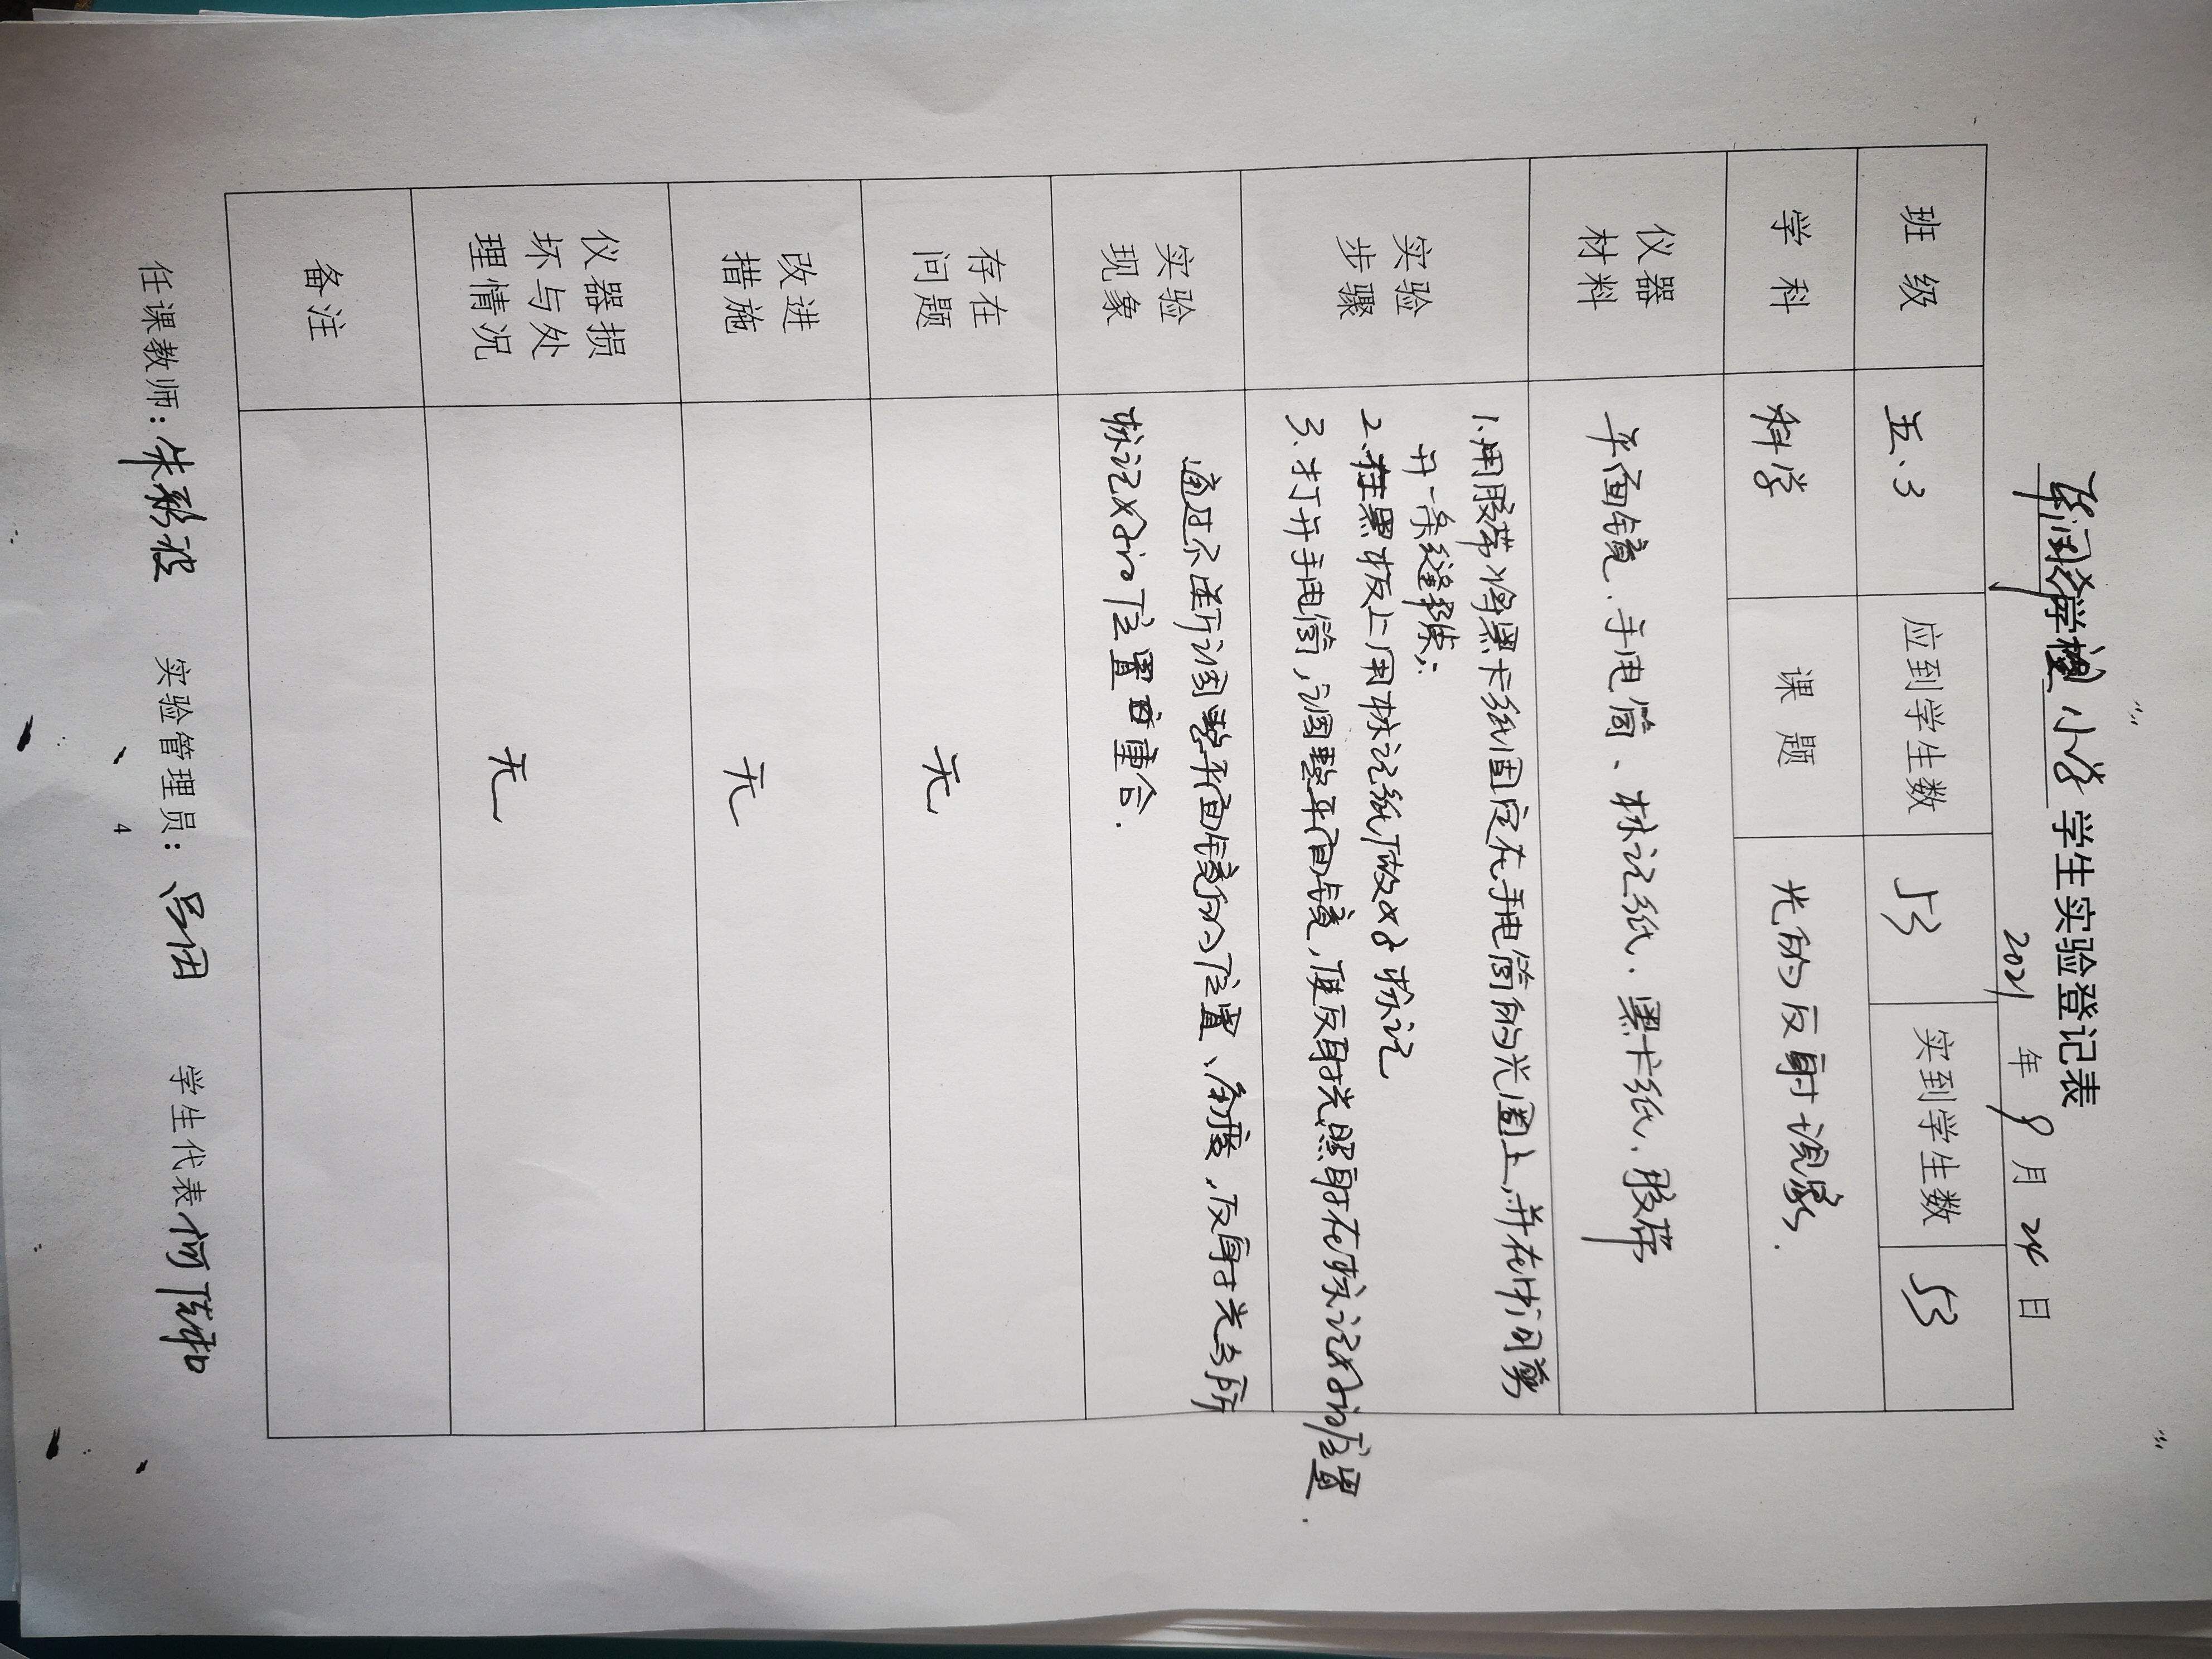 小学学生实验登记表
2021年9月24日
班级 五.3 应到学生数 53 实到学生数 53
学科 科学 课题 光的反射现象.
仪器
材料
平面镜、手电筒、标记纸、黑卡纸、胶带
实验
步骤
1.用胶带将黑卡纸固定在手电筒的光圈上,并在中间剪
开一条缝隙;
2.在黑板上用标记纸做好标记
3.打开手电筒,调整平面镜,使反射光照射在标记好的位置.
实验
现象
通过不断调整平面镜的位置、角度,反射光与所
标记好的位置重合.
存在
问题
无
改进
措施
无
仪器损
坏与处
理情况
无
备注
任课教师:朱 实验管理员:吕团 学生代表何
4